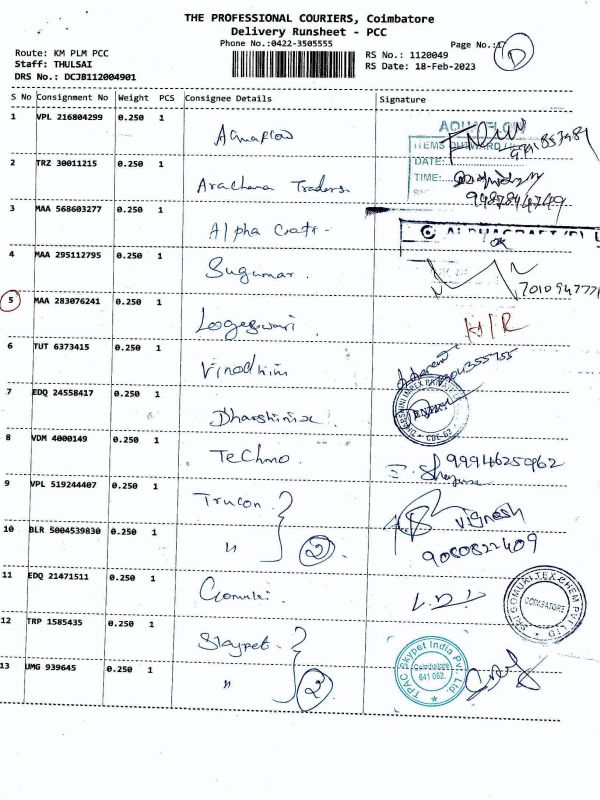 THE PROFESSIONAL COURIERS, Coimbatore
Delivery Runsheet - PCC
Phone No.:0422-3505555
Page No.:1
D
Route: KM PLM PCC
RS No.: 1120049
Staff: THULSAI
RS Date: 18-Feb-2023
DRS No.: DCJB112004901
S No Consignment No Weight PCS Consignee Details Signature
1 VPL 216804299 0.250 1 Aquaflow
AQUAFLOW
ITEMS OUTWARD
DATE:
TIME:
2 TRZ 30011215 0.250 1 Arachana Traders
9487844749
3 MAA 568603277 0.250 1 Alpha Craft -
4 MAA 295112795 0.250 1 Sugumar.
5 MAA 283076241 0.250 1 Logeswari
H/R
6 TUT 6373415 0.250 1 Vinodhini
7 EDQ 24558417 0.250 1 Dharshini
CBE-62
8 VDM 4000149 0.250 1 Techno
9994625962
9 VPL 519244407 0.250 1 Trucon.
Vignesh
10 BLR 5004539830 0.250 1 " 2
9080822409
11 EDQ 21471511 0.250 1 Gomuki
SRI GOMUKI TEX CHEM PVT LTD
COIMBATORE
12 TRP 1585435 0.250 1 Skypet.
TPAC Skypet India Pvt. Ltd.
Coimbatore
641 062.
13 UMG 939645 0.250 1 " 2